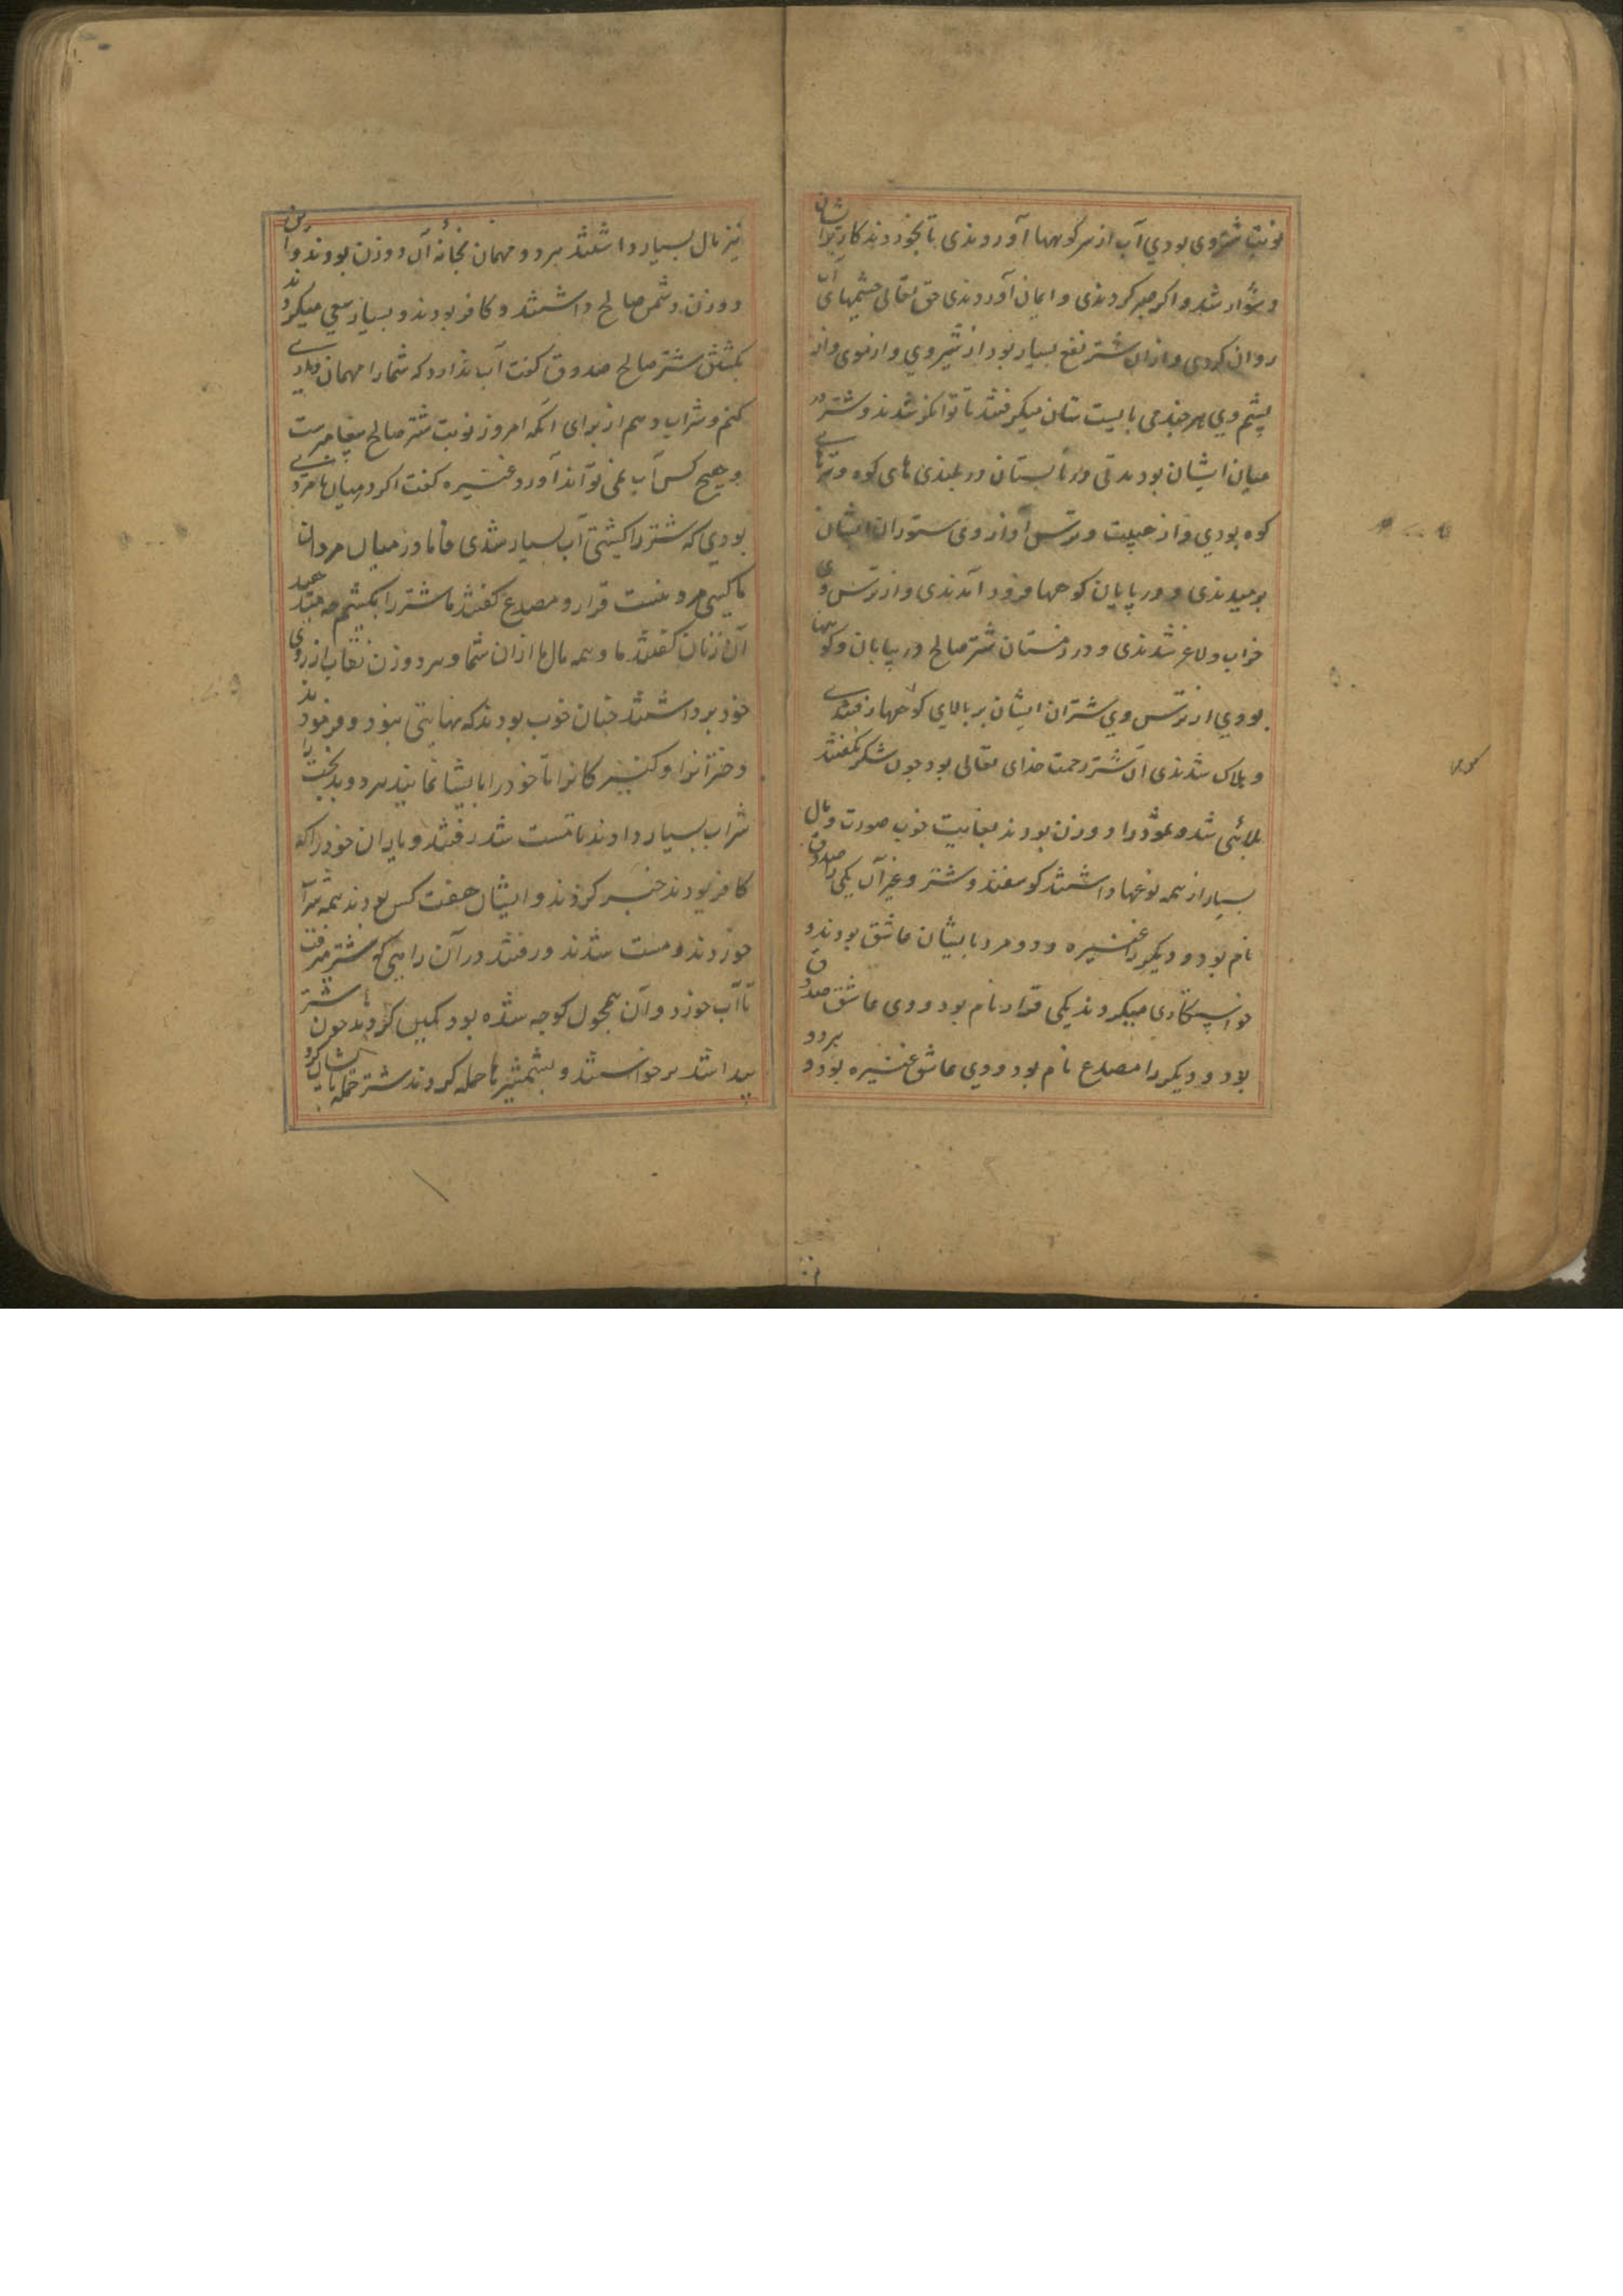 نوبت شتر وی بودی آب از سر کوهها آوردندی تا بخوردند کار بر ایشان
دشوار شد و اکر صبر کردندی و ایمان آوردندی حق تعالی چشمهای آب
روان کردی و ازان شتر نفع بسیار بود از شیر وی و از موی و از
پشم وی هر چند می بایست شان میکرفتند تا توانکر شدند و شتر در
میان ایشان بود مدتی و در تابستان در بلندی های کوه و
کوه بودی و از هیبت و ترس آواز وی ستوران ایشان
برمیدندی و در پایان کوهها فرود آمدندی و از ترس وی
خراب و لاغر شدندی و در زمستان شتر صالح در بیابان و کوهها
بودی از ترس وی شتران ایشان بر بالای کوهها رفتندی
و هلاک شدندی آن شتر رحمت خدای تعالی بود چون شکر نکفتند
بلائی شد و ثمود را دو زن بودند بغایت خوب صورت و مال
بسیار از همه نوعها داشتند کوسفند و شتر و غیر آن یکی را صدوق
نام بود و دیکر را عنیزه و دو مرد بایشان عاشق بودند و
خواستکاری میکردند یکی قدار نام بود و وی عاشق صدوق
بود و دیکر را مصدع نام بود و وی عاشق عنیزه بود و هر دو
نیز مال بسیار داشتند هر دو مهمان بخانه آن دو زن بودند و این
دو زن دشمن صالح داشتند و کافر بودند و بسیار سعی میکردند
بکشتن شتر صالح صدوق کفت آب ندارد که شما را مهمان داری
کنم و شراب دهم از برای آنکه امروز نوبت شتر صالح پیغامبرست
و هیچ کس آب نمی تواند آورد و عنیزه کفت اکر در میان ما مردی
بودی که شتر را بکشتی آب بسیار شدی فاما در میان مردان
ما کسی مرد نیست قدار و مصدع کفتند ما شتر را بکشیم چه میدهید
آن زنان کفتند ما و همه مال ما ازان شما و هر دو زن نقاب از روی
خود برداشتند چنان خوب بودند که نهایتی نبود و فرمودند
دخترانرا و کنیزکانرا تا خود را بایشان نمایند هر دو بدبخت را
شراب بسیار دادند تا مست شدند رفتند و یاران خود را که
کافر بودند خبر کردند و ایشان هفت کس بودند همه شراب
خوردند و مست شدند و رفتند در آن راهی که شتر میرفت
تا آب خورد و آن همچون کوچه شده بود کمین کردند چون شتر
پیدا شد برخواستند و بشمشیرها حمله کردند شتر حمله بایشان کرد